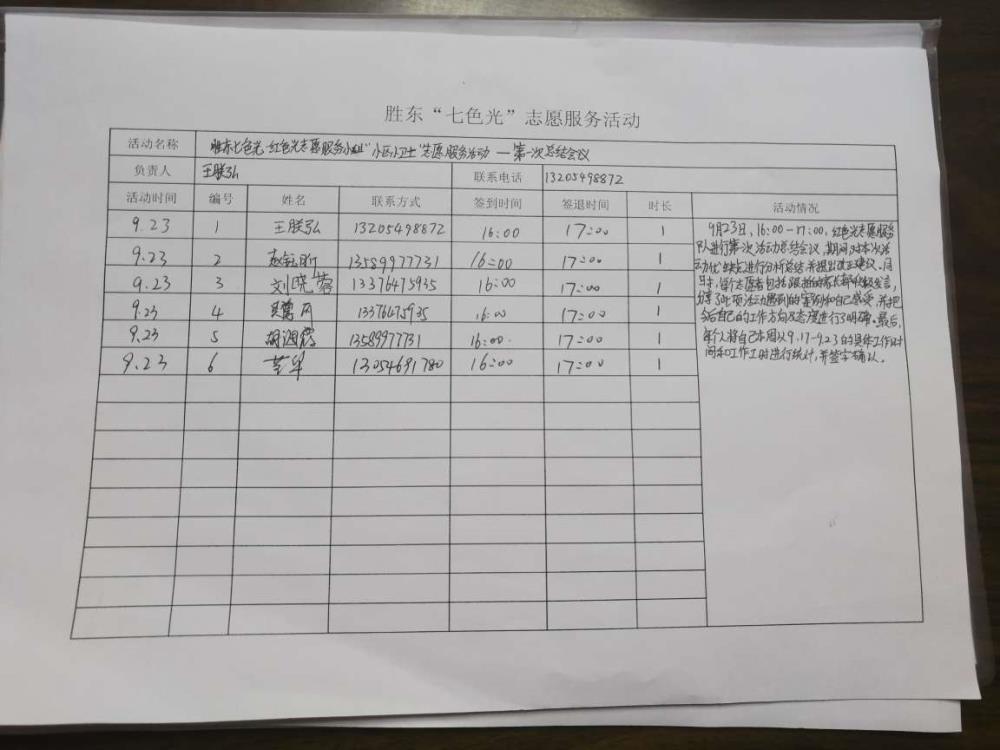 胜东“七色光”志愿服务活动
活动名称 胜东七色光·红色光志愿服务小组“小区小卫士”志愿服务活动—第一次总结会议
负责人 王朕弘 联系电话 13205498872
活动时间 编号 姓名 联系方式 签到时间 签退时间 时长 活动情况
9.23 1 王朕弘 13205498872 16:00 17:00 1
9.23 2 13589977731 16:00 17:00 1
9.23 3 刘晓蓉 13376475935 16:00 17:00 1
9.23 4 13376475935 16:00 17:00 1
9.23 5 胡润霖 13589977731 16:00 17:00 1
9.23 6 13054691780 16:00 17:00 1
9月23日,16:00-17:00,红色光志愿服务
队进行第一次活动总结会议,期间对本次活
动优缺点进行分析总结并提出改正建议。同
时,每个志愿者包括跟拍的家长都积极发言,
分享了此项活动遇到的案例和自己感受,并把
今后自己的工作方向及态度进行了明确。最后,
每个人将自己本周从9.17-9.23的具体工作时
间和工作工时进行统计,并签字确认。